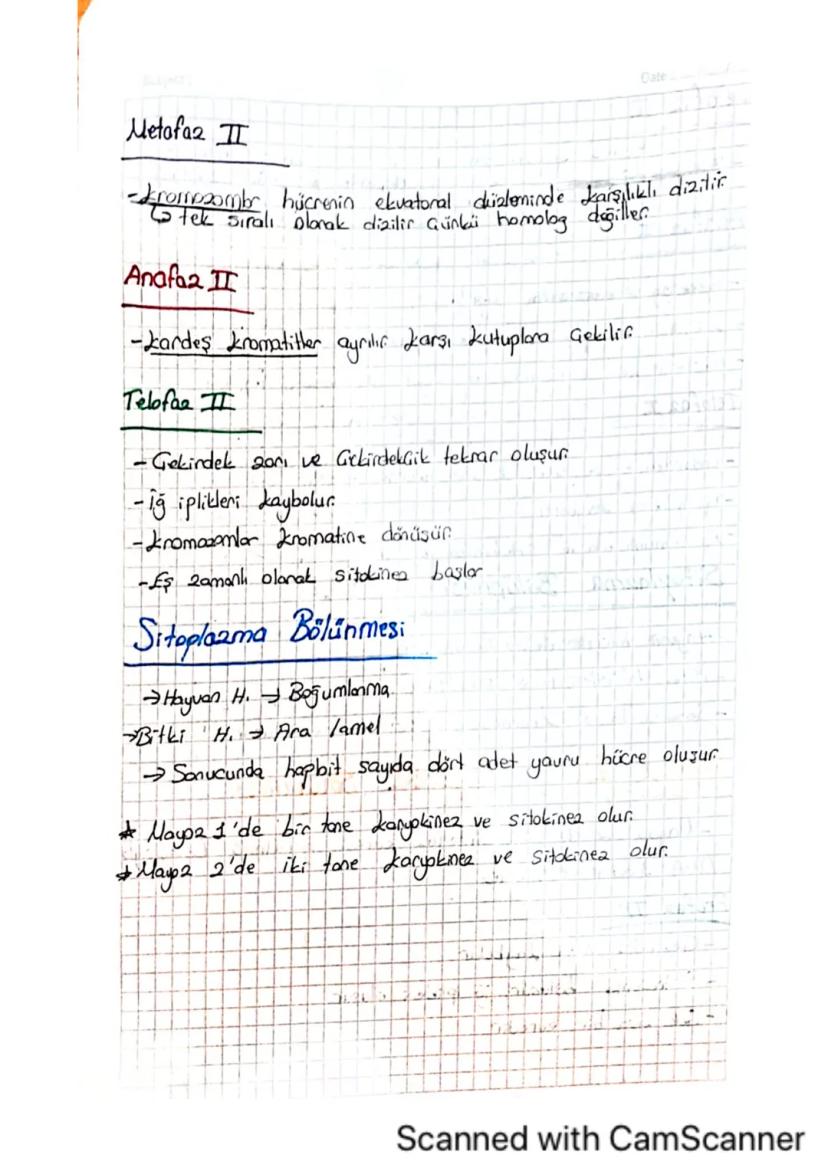 Date
Metafaz II
-kromozomlar hücrenin ekvatoral düzleminde karşılıklı dizilir.
↳ tek sıralı olarak dizilir çünkü homolog değiller.
Anafaz II
-kardeş kromatitler ayrılır karşı kutuplara çekilir.
Telofaz II
- Çekirdek zarı ve çekirdekçik tekrar oluşur.
- iğ iplikleri kaybolur.
-kromozomlar kromatine dönüşür.
-Eş zamanlı olarak sitokinez başlar
Sitoplazma Bölünmesi
→Hayvan H. → Boğumlanma.
→Bitki H. → Ara lamel
→ Sonucunda haploit sayıda dört adet yavru hücre oluşur.
★ Mayoz 1'de bir tane karyokinez ve sitokinez olur.
★ Mayoz 2'de iki tane karyokinez ve sitokinez olur.
Scanned with CamScanner